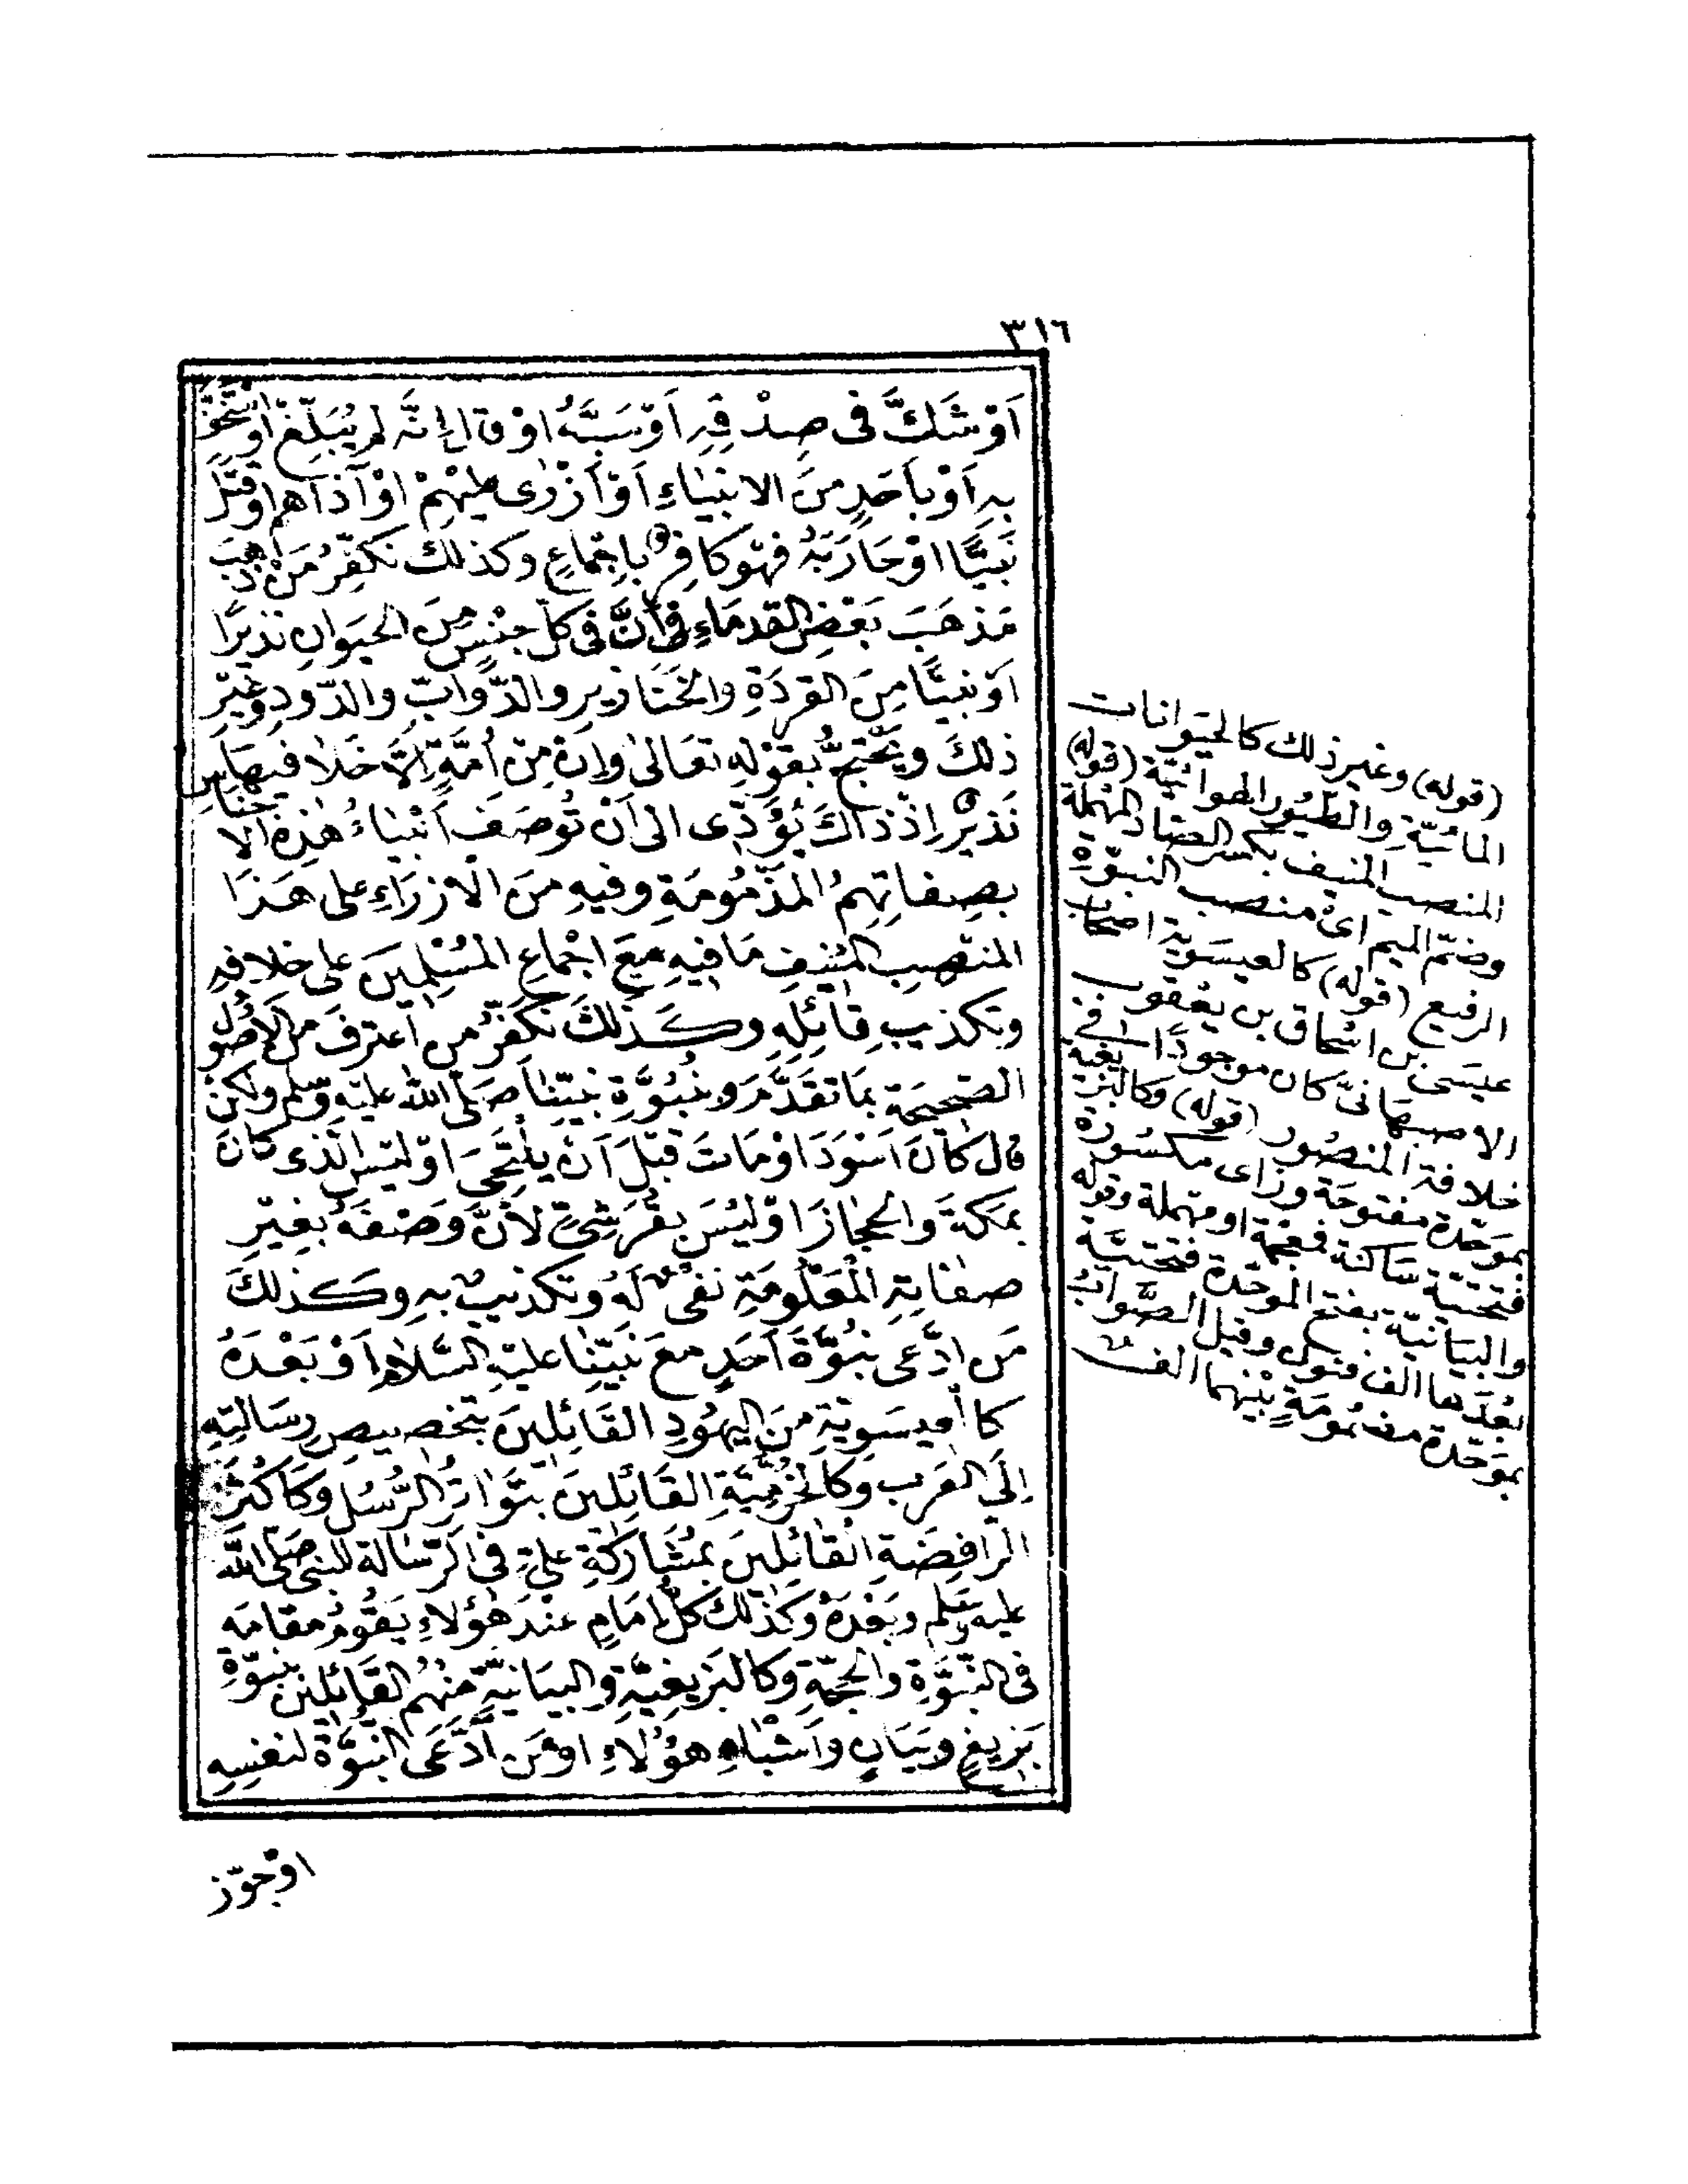 ٣١٦
اَوْ شَكَّ فى صِدْقِهِ اَوْ سَبَّهُ اوْ قال اِنَّه لم يُبَلِّغْ اَوِ اسْتَخَفَّ
بِهِ اَوْ بِاَحَدٍ مِنَ الانبيَاءِ اَوْ اَزْرٰى عليْهِمْ اوْ آذاهم اوْ قَتَلَ
نَبِيًّا اوْ حَارَبَهُ فهُوَ كافِرٌ بِاِجْماعٍ وكذلك نكفّرُ مَنْ ذهَبَ
مَذهَبَ بَعْضِ القدمَاءِ فى اَنَّ فى كلّ جِنْسٍ مِنَ الحيَوانِ نذيرًا
اَوْ نبيًّا مِنَ القردَةِ والخنَازير والدّوابّ والدّودِ وغيْرِ
ذلكَ ويَحْتجُّ بقوْلِهِ تعَالىٰ وإنْ مِنْ اُمَّةٍ اِلاَّ خَلاَ فيهَا
نَذيرٌ اِذ ذاكَ يُؤدِّى الى اَنْ تُوصَفَ اَنْبيَاءُ هٰذِهِ الاجناسِ
بصِفاتِهِمُ المَذْمُومَةِ وفيهِ مِنَ الاْزرَاءِ على هٰذَا
المنْصِبِ المُنيفِ مَا فيهِ مَعَ اجْماعِ المُسْلِمينَ على خلافِهِ
وتكذيبِ قائلِهِ وكَذلكَ نكَفّرُ مَن اعترفَ منَ الاُصُولِ
الصّحيحَةِ بمَا تقدَّمَ ونبُوَّةِ نبيّنا صَلّى الله عليْهِ وسلم ولكنْ
قال كانَ اَسْوَدَ اوْ مَاتَ قبْلَ اَنْ يلْتَحِىَ اَوْ ليْسَ الّذى كانَ
بمَكّةَ والحجَازِ اَوْ ليْسَ بقُرَشِىٍّ لاَنَّ وَصْفَهُ بغيْرِ
صفاتِهِ المَعْلُومَةِ نفىٌ لَهُ وتكذيبٌ بهِ وكَذلكَ
مَن ادَّعى نبُوَّةَ اَحَدٍ مَعَ نبيّنا عليْهِ السّلام اَوْ بَعْدَهُ
كالعيسَوِيّةِ مِنَ اليهُودِ القَائِلينَ بتخصيصِ رِسَالتِهِ
اِلَى العَرب وكالخُرّميَّةِ القَائِلينَ بتَوَاتُرِ الرُّسُلِ وكَاَكْثَرِ
الرافِضَةِ القائِلينَ بمُشَارَكَةِ علىٍّ فى الرّسالةِ للنبى صَلى الله
عليه وسلم وبَعْدَهُ وكذلكَ كلُّ اِمَامٍ عنْدَ هٰؤلاءِ يَقُومُ مقَامَه
فى النّبوَّةِ والحجّةِ وكالبَزيغيَّةِ والبيَانيّةِ مِنْهُمُ القَائِلينَ بنبوّةِ
بَزيغٍ وبيَانٍ واَشْباهِ هؤُلاءِ اوْ مَن ادَّعَى النبُوَّةَ لنفسِهِ
اوْ جوّز
(قوله) وغير ذلك كالحيَوانات
المائيّةِ والطيُور الهوائيّة (قوله)
المنصب المنيف بكسر الصّاد المهملة
وضمّ الميم اى منصب النبوّةِ
الرفيع (قوله) كالعيسَويّة اصحاب
عيسَى بن اسْحاق بن يعْقوب
الاصبهَانىّ كان موجودًا فى
خلافة المنصُور (قوله) وكالبزيغيّة
بموَحّدة مفتوحَة وزاى مكسُورة
فتحتيّة سَاكنة فمعْجمة او مهملة وقوله
والبيَانيّة بفتح الموحّدة فتحتيّة
بعْدَها الف فنون وقيل الصّوابُ
بموَحّدة مضمُومَةٍ بيْنهما الف